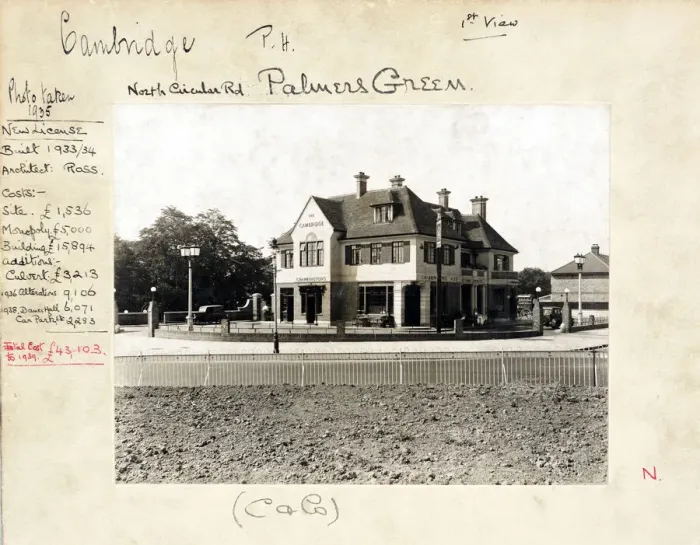 Cambridge P.H. 1st View
North Circular Rd. Palmers Green.
Photo taken
1935
New License
Built 1933/34
Architect: Ross.
Costs:-
Site. £1,536
Monopoly £5,000
Building £15,894
Additions:-
Culvert £3213
1936 Alterations 9,106
1938, Dance Hall 6,071
Car Park £2,283
Total Cost £43,103.
to 1939.
THE
CAMBRIDGE
(Ca Co)
N.